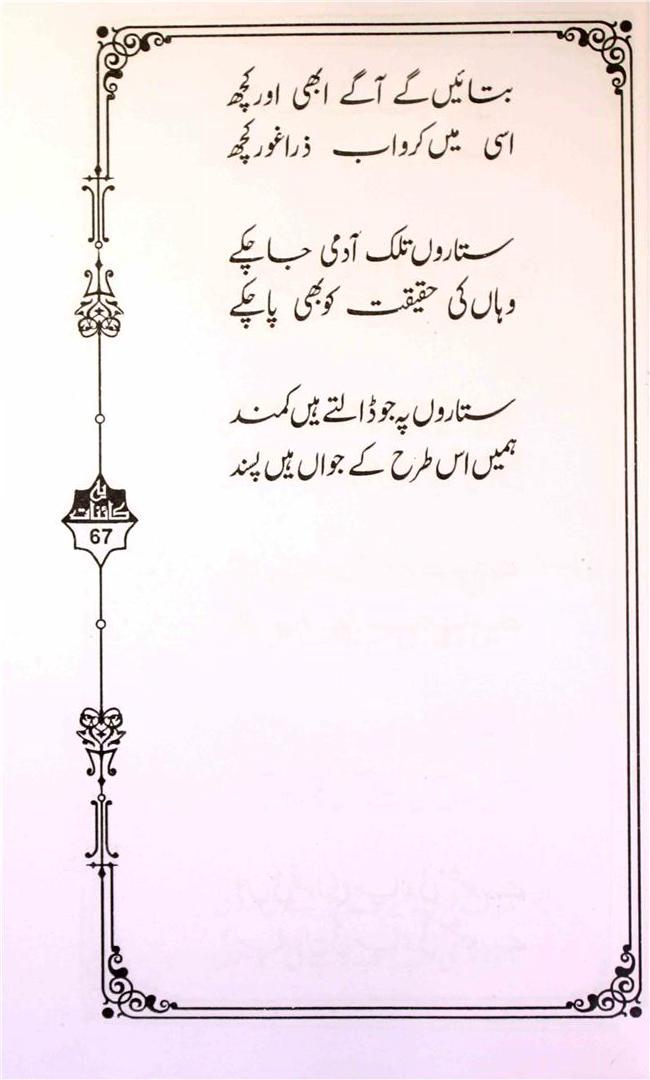 بتائیں گے آگے ابھی اور کچھ
اسی میں کرو اب ذرا غور کچھ
ستاروں تلک آدمی جا چکے
وہاں کی حقیقت کو بھی پا چکے
ستاروں پہ جو ڈالتے ہیں کمند
ہمیں اس طرح کے جواں ہیں پسند
یہ
کائنات
67